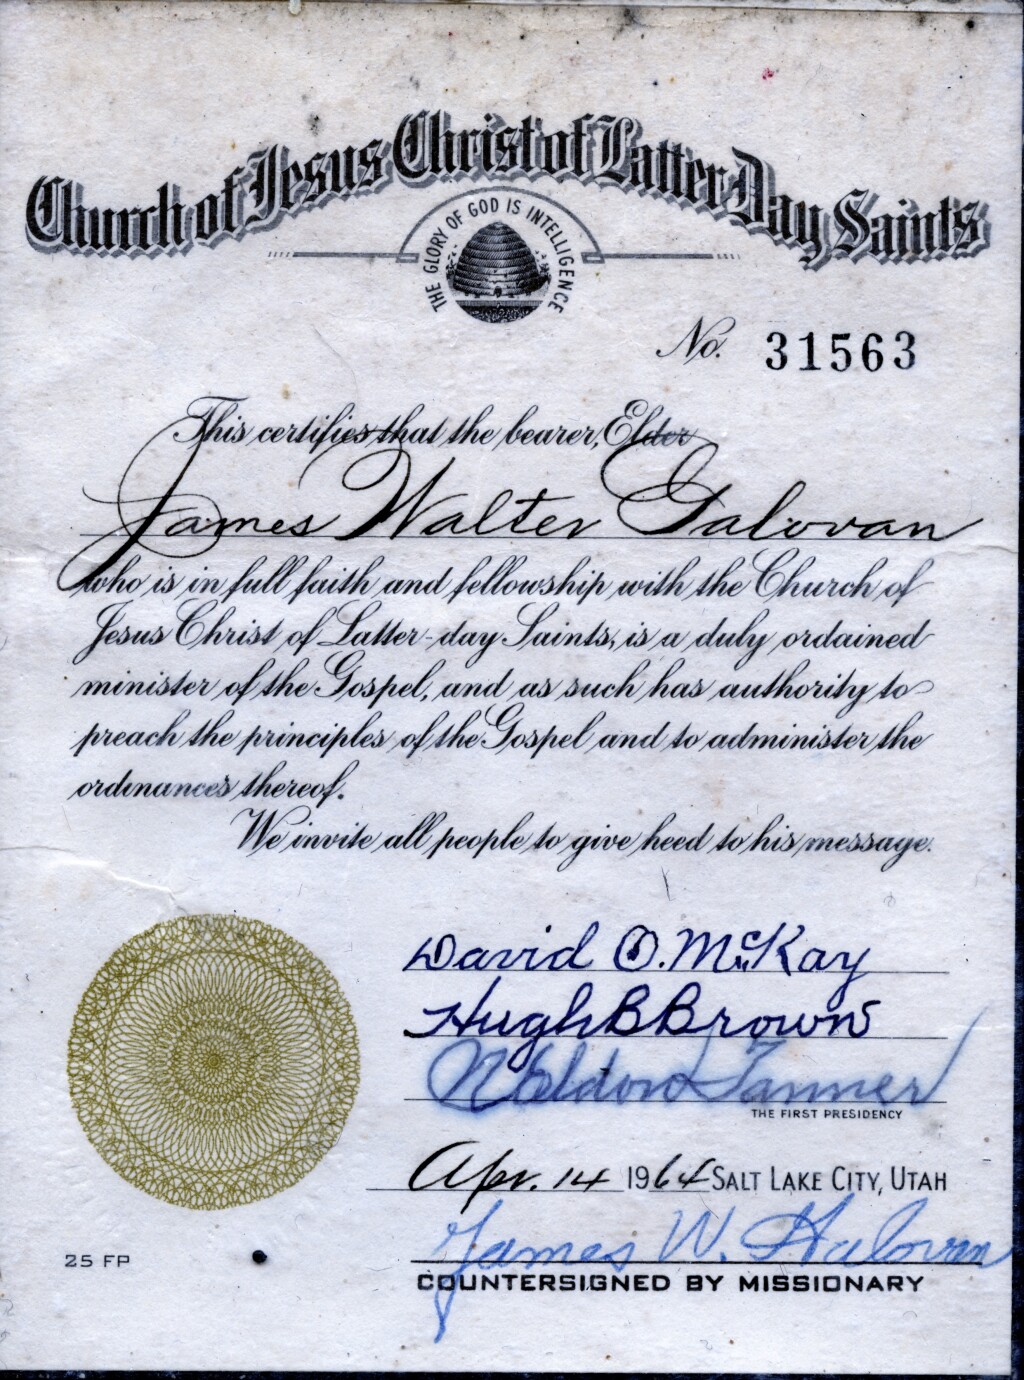 Church of Jesus Christ of Latter Day Saints
THE GLORY OF GOD IS INTELLIGENCE
No. 31563
This certifies that the bearer, Elder
James Walter Galovan
who is in full faith and fellowship with the Church of
Jesus Christ of Latter-day Saints, is a duly ordained
minister of the Gospel, and as such has authority to
preach the principles of the Gospel and to administer the
ordinances thereof.
We invite all people to give heed to his message.
David O. McKay
Hugh B Brown
N Eldon Tanner
THE FIRST PRESIDENCY
Apr. 14 1964 SALT LAKE CITY, UTAH
James W. Galovan
25 FP
COUNTERSIGNED BY MISSIONARY